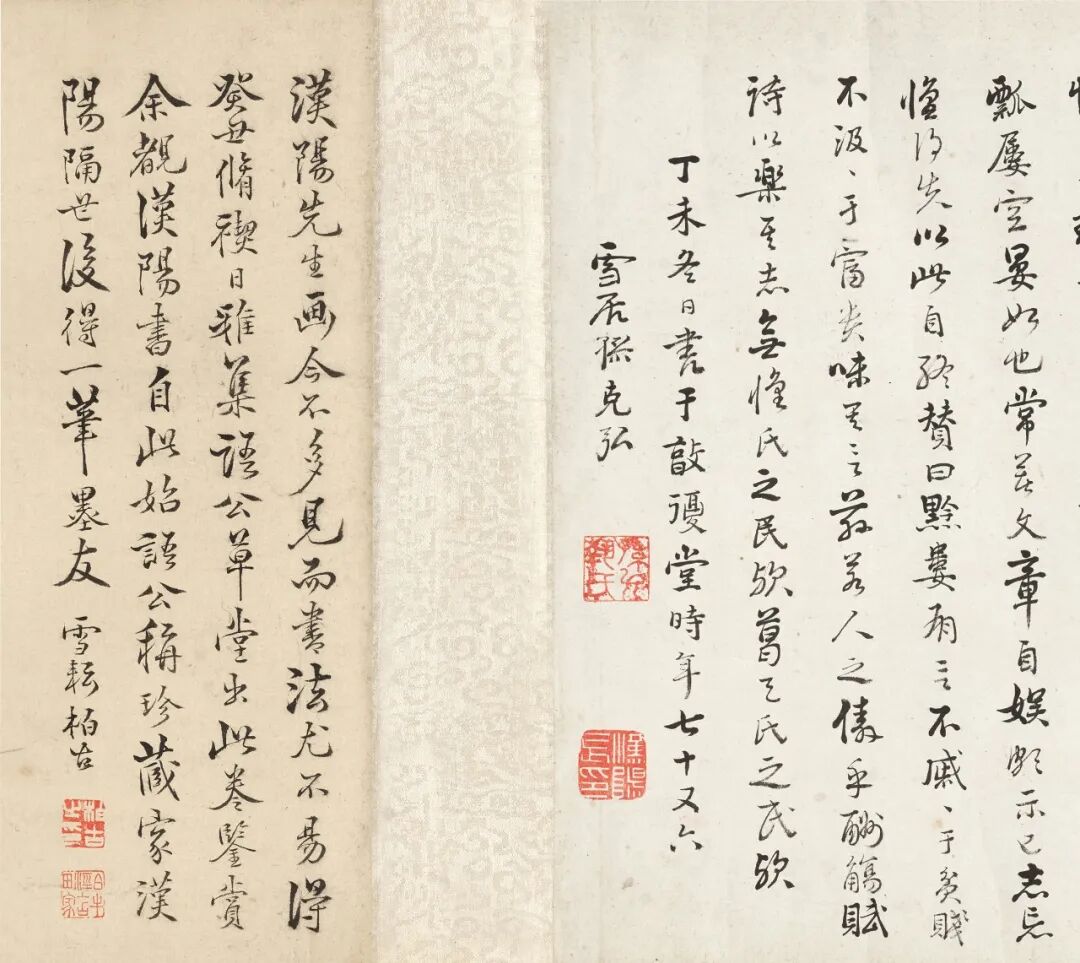 瓢屢空晏如也常著文章自娛頗示己志忘
懷得失以此自終贊曰黔婁有言不戚〻于貧賤
不汲〻于富貴味其言茲若人之儔乎酬觴賦
詩以樂其志無懷氏之民歟葛天氏之民歟
丁未冬日書于敦復堂時年七十又六
雪居孫克弘
孫允執氏
漢陽先生画今不多見而書法尤不易得
癸丑脩禊日雅集語公草堂出此卷鑒賞
余覩漢陽書自此始語公稱珍藏家漢
陽隔世後得一筆墨友 雪耘柏古
柏古之印